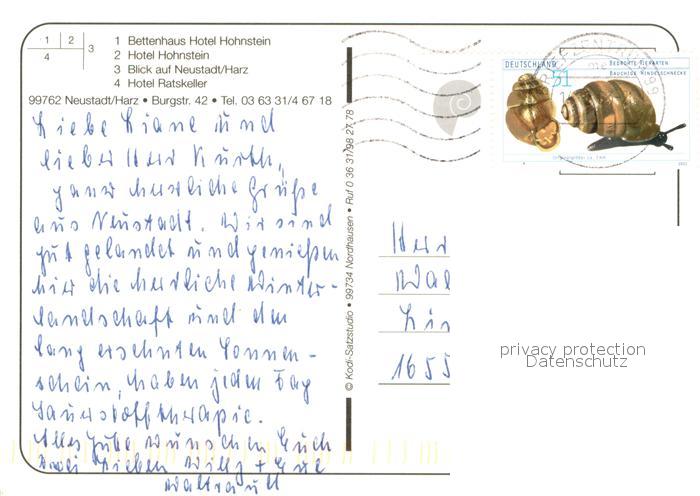 1 2
4
3
1 Bettenhaus Hotel Hohnstein
2 Hotel Hohnstein
3 Blick auf Neustadt/Harz
4 Hotel Ratskeller
99762 Neustadt/Harz • Burgstr. 42 • Tel. 03 63 31/4 67 18
Liebe Liane und
lieber Herr Kurth,
ganz herrliche Grüße
aus Neustadt. Wir sind
gut gelandet und genießen
hier die herrliche Winter-
landschaft und den
lang ersehnten Sonnen-
schein, haben jeden Tag
Sauerstofftherapie.
Alles Gute wünschen Euch
Willy +
Waltraut
© Kodi-Satzstudio • 99734 Nordhausen • Ruf 0 36 31/98 27 78
DEUTSCHLAND
51
BEDROHTE TIERARTEN
BAUCHIGE WINDELSCHNECKE
BRIEFZENTRUM
99
Herr
Wal
Lin
1655
privacy protection
Datenschutz